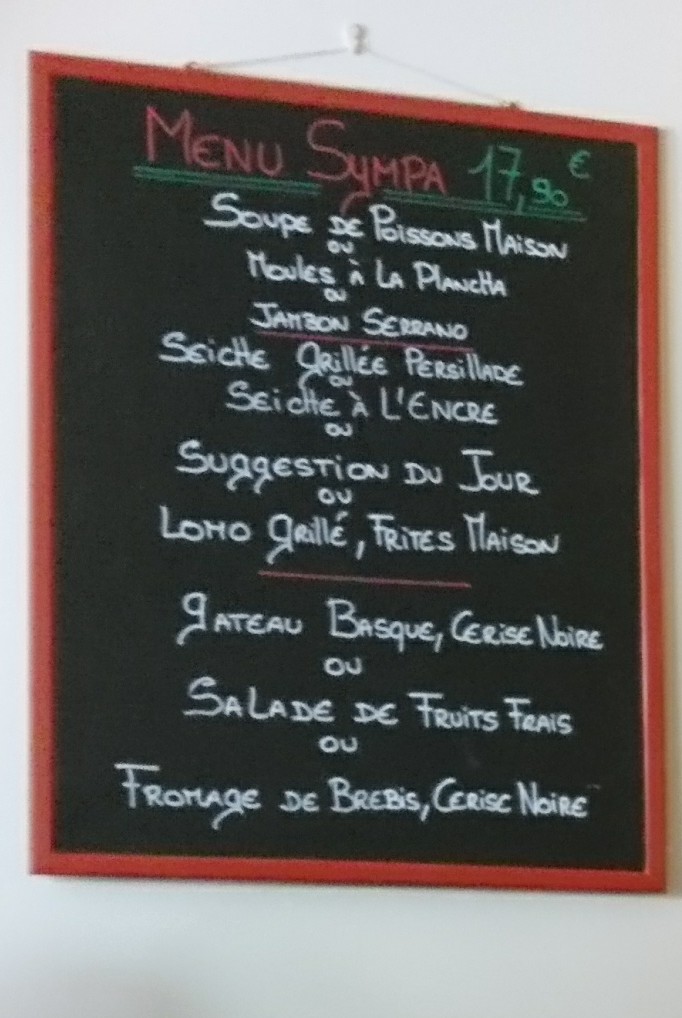 MENU SYMPA 17,90 €
SOUPE DE POISSONS MAISON
OU
MOULES À LA PLANCHA
OU
JAMBON SERRANO
SEICHE GRILLÉE PERSILLADE
OU
SEICHE À L'ENCRE
OU
SUGGESTION DU JOUR
OU
LOMO GRILLÉ, FRITES MAISON
GATEAU BASQUE, CERISE NOIRE
OU
SALADE DE FRUITS FRAIS
OU
FROMAGE DE BREBIS, CERISE NOIRE